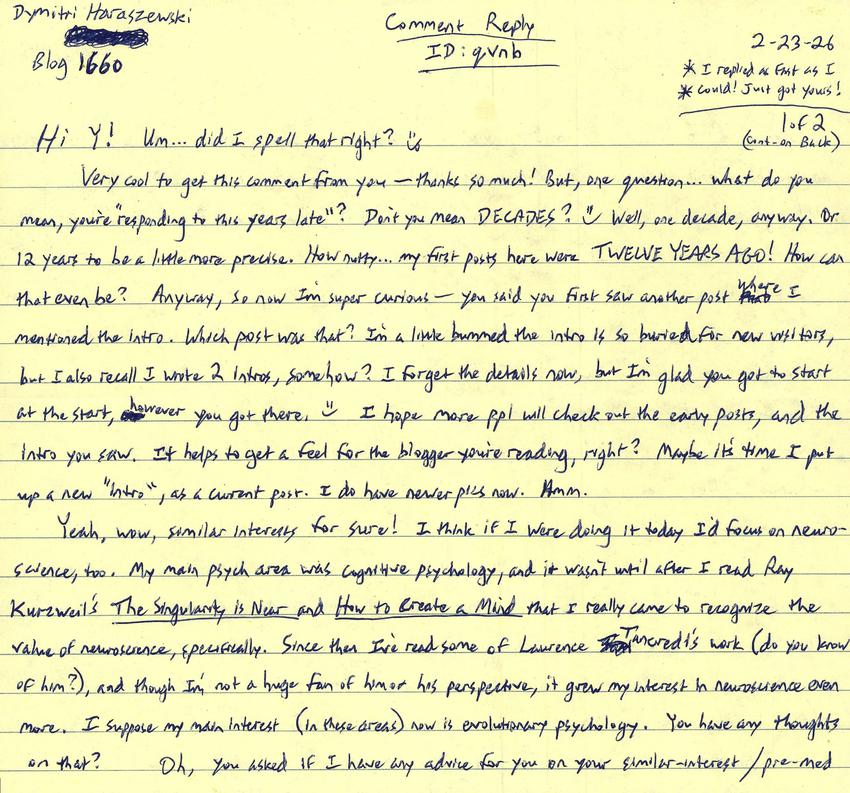 Dymitri Haraszewski
Comment Reply
ID: qvnb
Blog 1660
2-23-26
* I replied as fast as I
* could! Just got yours!
1 of 2
(cont-on Back)
Hi Y! Um... did I spell that right? :)
Very cool to get this comment from you — thanks so much! But, one question... what do you
mean, you're "responding to this years late"? Don't you mean DECADES? :) Well, one decade, anyway. Or
12 years to be a little more precise. How nutty... my first posts here were TWELVE YEARS AGO! How can
that even be? Anyway, so now I'm super curious — you said you first saw another post where I
mentioned the intro. Which post was that? I'm a little bummed the intro is so buried for new visitors,
but I also recall I wrote 2 intros, somehow? I forget the details now, but I'm glad you got to start
at the start, however you got there. :) I hope more ppl will check out the early posts, and the
Intro you saw. It helps to get a feel for the blogger you're reading, right? Maybe it's time I put
up a new "Intro", as a current post. I do have newer pics now. Hmm.
Yeah, wow, similar interests for sure! I think if I were doing it today I'd focus on neuro-
science, too. My main psych area was cognitive psychology, and it wasn't until after I read Ray
Kurzweil's The Singularity is Near and How to Create a Mind that I really came to recognize the
value of neuroscience, specifically. Since then I've read some of Laurence Tancredi's work (do you know
of him?), and though I'm not a huge fan of him or his perspective, it grew my interest in neuroscience even
more. I suppose my main interest (in these areas) now is evolutionary psychology. You have any thoughts
on that? Oh, you asked if I have any advice for you on your similar-interest/pre-med